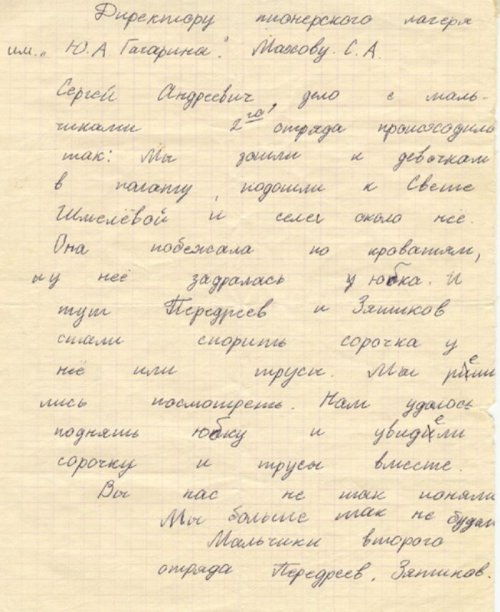 Директору пионерского лагеря
им. „Ю. А Гагарина". Махову. С. А.
Сергей Андреевич, дело с маль-
чиками 2го отряда происходило
так: Мы зашли к девочкам
в палату, подошли к Свете
Шмелёвой и сели около нее.
Она побежала по кроватям,
и у неё задралась у юбка. И
тут Передреев и Зятиков
стали спорить сорочка у
неё или трусы. Мы реши
лись посмотреть. Нам удалось
поднять юбку и увидели
сорочку и трусы вместе.
Вы нас не так поняли
Мы больше так не будем
Мальчики второго
отряда Передреев, Зятиков.